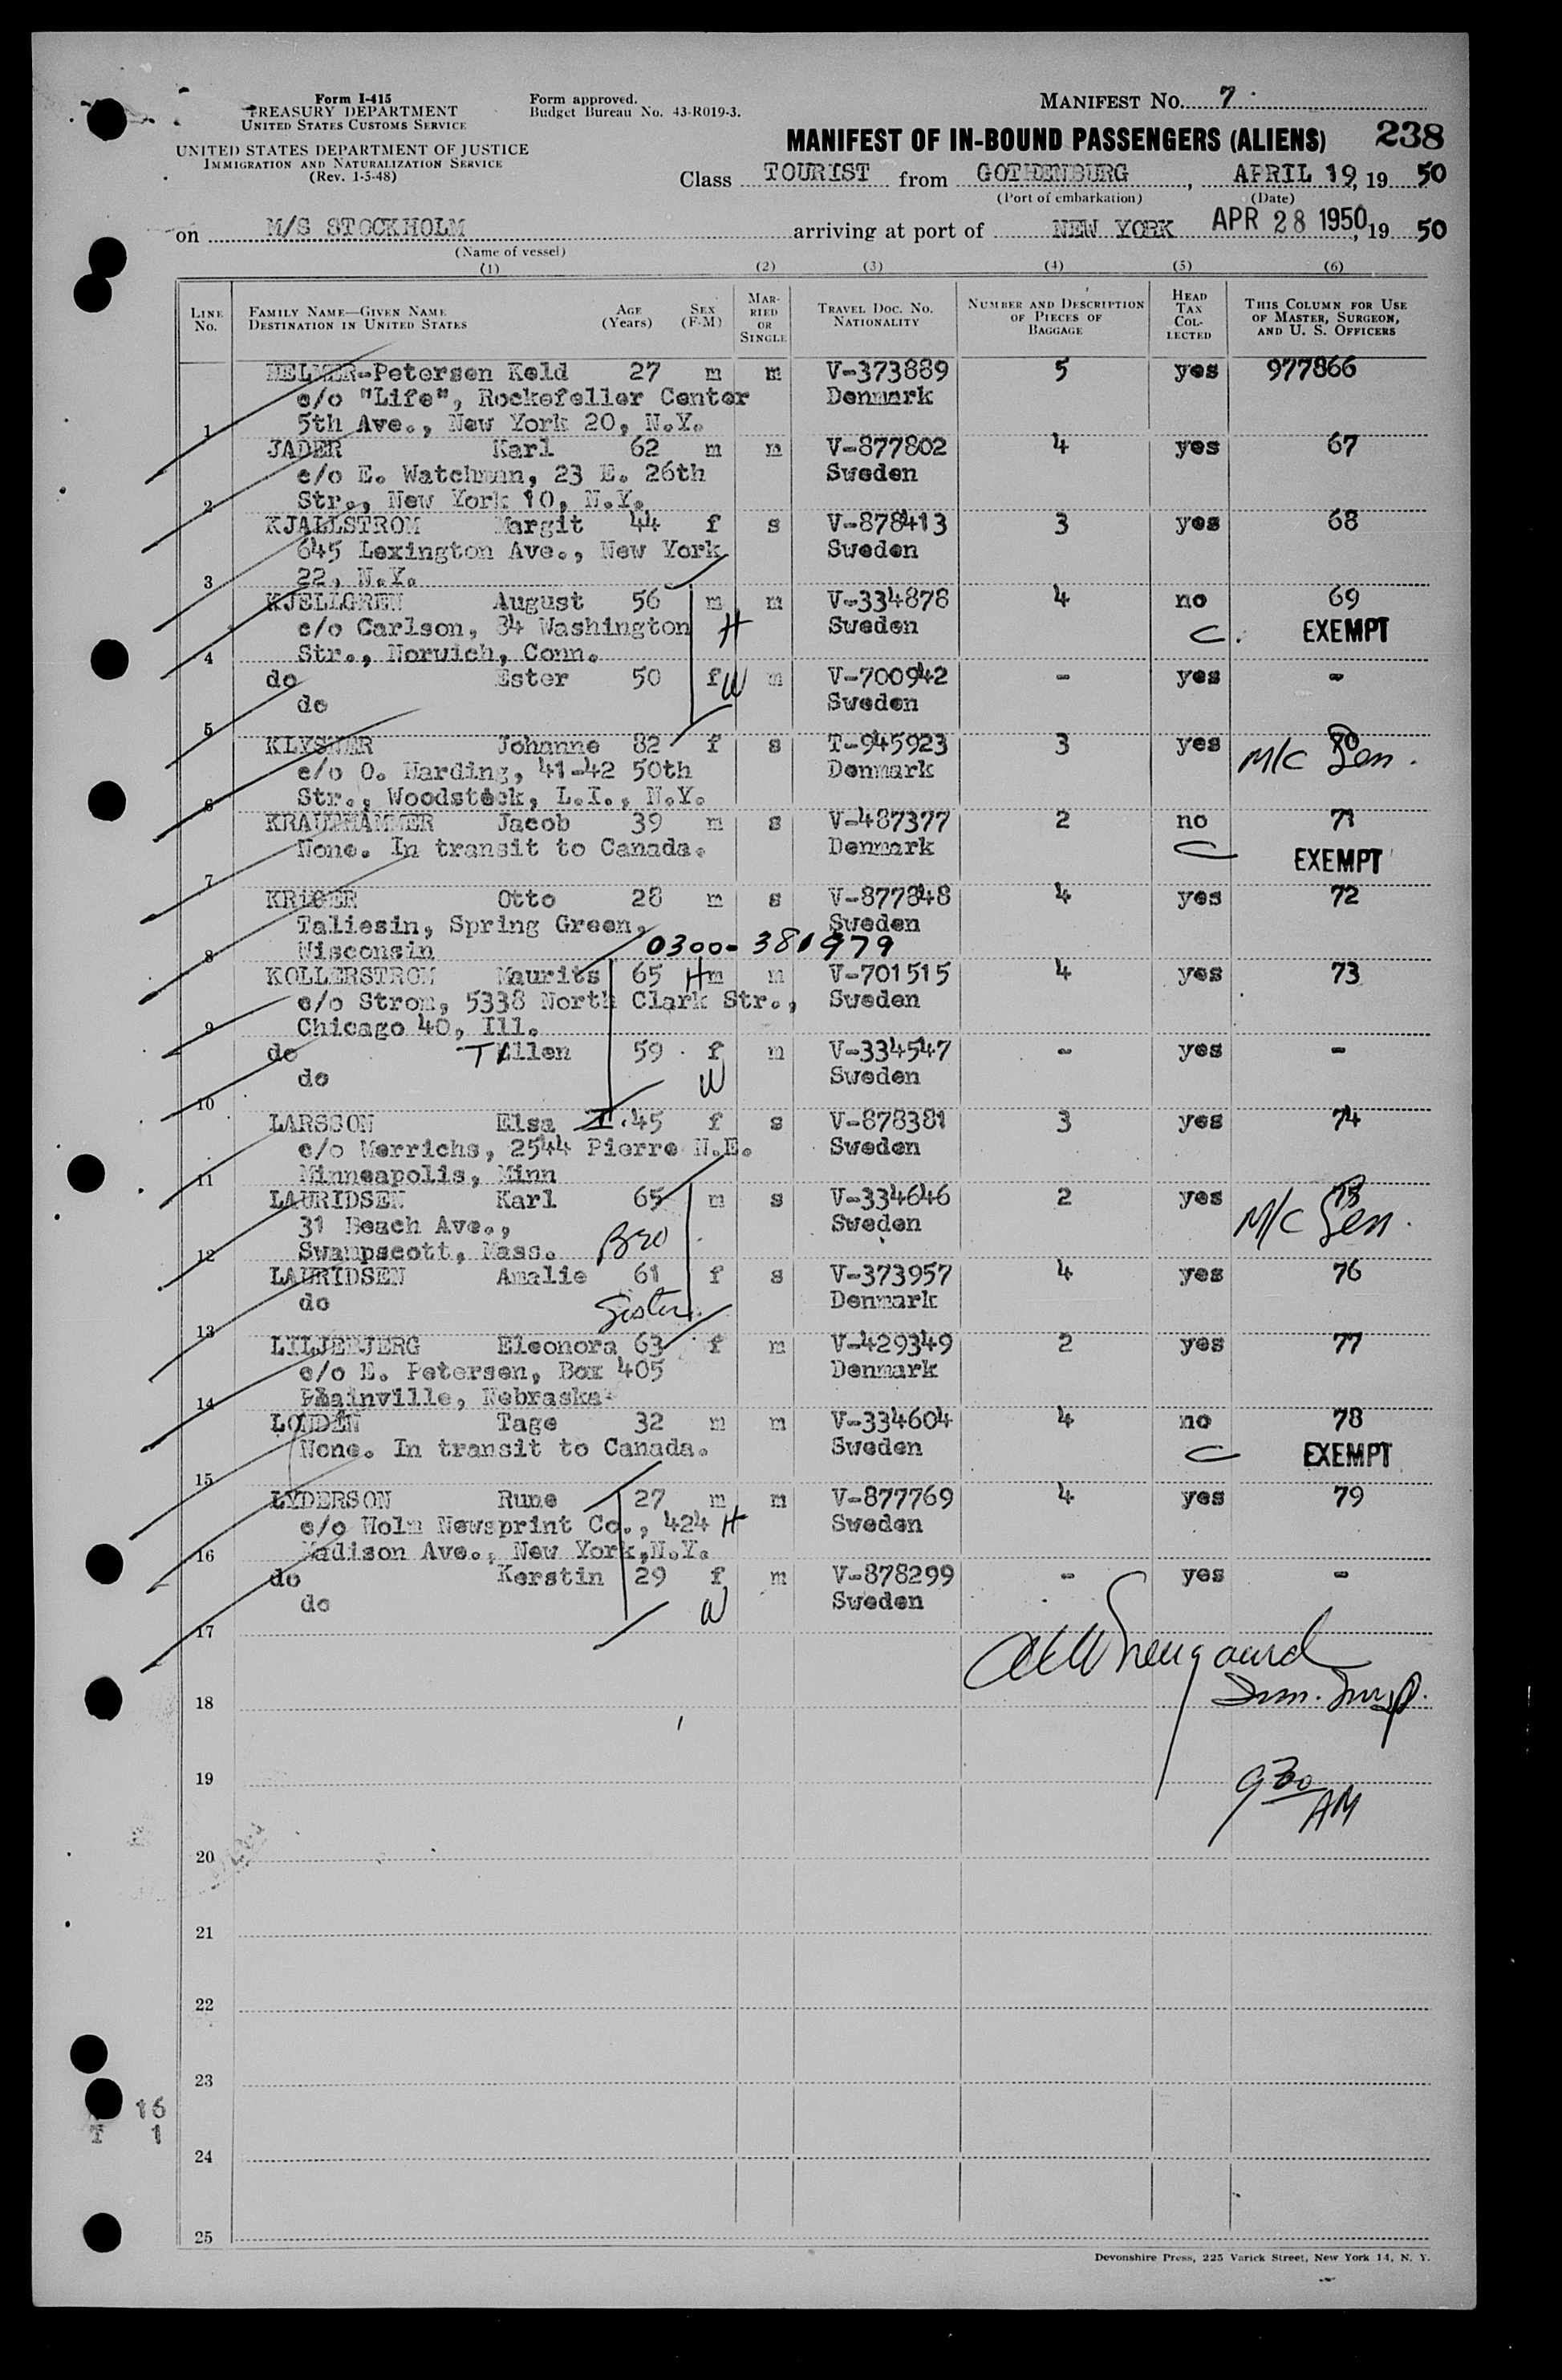 Form I-415
TREASURY DEPARTMENT
UNITED STATES CUSTOMS SERVICE
UNITED STATES DEPARTMENT OF JUSTICE
IMMIGRATION AND NATURALIZATION SERVICE
(Rev. 1-5-48)
Form approved.
Budget Bureau No. 43-R019-3.
MANIFEST NO. 7
MANIFEST OF IN-BOUND PASSENGERS (ALIENS) 238
Class TOURIST from GOTHENBURG, APRIL 19, 19 50
(Port of embarkation) (Date)
on M/S STOCKHOLM arriving at port of NEW YORK APR 28 1950, 19 50
(Name of vessel)
(1) (2) (3) (4) (5) (6)
LINE No. FAMILY NAME—GIVEN NAME DESTINATION IN UNITED STATES AGE (Years) SEX (F-M) MARRIED OR SINGLE TRAVEL DOC. NO. NATIONALITY NUMBER AND DESCRIPTION OF PIECES OF BAGGAGE HEAD TAX COLLECTED THIS COLUMN FOR USE OF MASTER, SURGEON, AND U. S. OFFICERS
HELMER-Petersen Keld 27 m m V-373889 5 yes 977866
c/o "Life", Rockefeller Center Denmark
1 5th Ave., New York 20, N.Y.
JADER Karl 62 m m V-877802 4 yes 67
c/o E. Watchman, 23 E. 26th Sweden
2 Str., New York 10, N.Y.
KJALLSTROM Margit 44 f s V-878413 3 yes 68
645 Lexington Ave., New York Sweden
3 22, N.Y.
KJELLGREN August 56 m m V-334878 4 no 69
c/o Carlson, 34 Washington H Sweden C. EXEMPT
4 Str., Norwich, Conn.
do Ester 50 f W m V-700942 - yes -
do Sweden
5
KLYSNER Johanne 82 f s T-945923 3 yes 80
c/o O. Harding, 41-42 50th Denmark M/C Sen.
6 Str., Woodstock, L.I., N.Y.
KRAUTHAMMER Jacob 39 m s V-487377 2 no 71
None. In transit to Canada. Denmark C EXEMPT
7
KRiGER Otto 28 m s V-877848 4 yes 72
Taliesin, Spring Green, Sweden
8 Wisconsin 0300-381979
KOLLERSTROM Maurits 65 H m m V-701515 4 yes 73
c/o Strom, 5338 North Clark Str., Sweden
9 Chicago 40, Ill.
do Ellen 59 f m V-334547 - yes -
do W Sweden
10
LARSSON Elsa I. 45 f s V-878381 3 yes 74
c/o Merrichs, 2544 Pierre N.E. Sweden
11 Minneapolis, Minn
LAURIDSEN Karl 65 m s V-334646 2 yes 75
31 Beach Ave., Sweden M/C Sen.
12 Swampscott, Mass. Bro
LAURIDSEN Amalie 61 f s V-373957 4 yes 76
do Sister Denmark
13
LILJEBJERG Eleonora 63 f m V-429349 2 yes 77
c/o E. Petersen, Box 405 Denmark
14 Plainville, Nebraska
LONDEN Tage 32 m m V-334604 4 no 78
None. In transit to Canada. Sweden C EXEMPT
15
LYDERSON Rune 27 m m V-877769 4 yes 79
c/o Holm Newsprint Co., 424 H Sweden
16 Madison Ave., New York, N.Y.
do Kerstin 29 f m V-878299 - yes -
do W Sweden
17
18 Imm. Insp.
19
9 30 AM
20
21
22
23
16
T 1
24
25
Devonshire Press, 225 Varick Street, New York 14, N. Y.